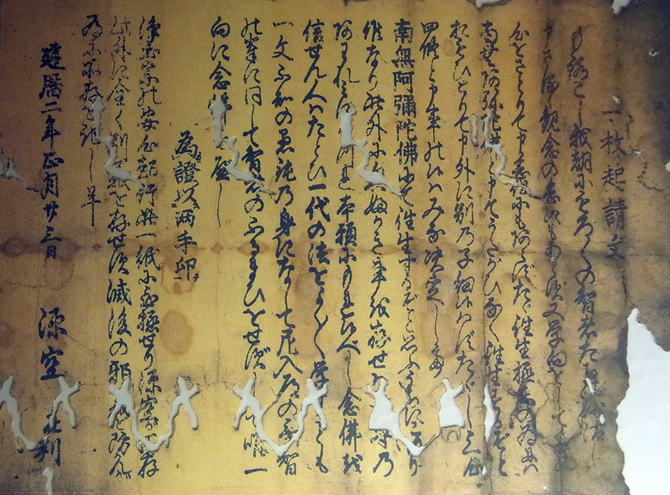 一枚起請文
もろこし我朝にもろ〱の智者たちの沙汰し
申さるゝ観念の念にもあらす又学問をして
心をさとりて申念佛にもあらずたゝ往生極楽の為には
南無阿弥陀佛と申てうたかひなく往生するそと
おもひとりて申外に別の子細はばたゞし三心
四修と申事の候はみな決定して
南無阿彌陀佛にて往生するぞと思ふ内にこもり
候なり此外におくふかき事を存せ尊乃
あはれみに れ本願にもれ候べし念佛を
信せん人はたとひ一代の法をよく〱学すとも
一文不知の愚鈍乃身になして尼入道の無智
の輩に同して智者のふるまひをせずして唯一
向に念佛すべし
為證以両手印
浄土宗の安心起行此一紙に至極せり源空が所存
此外に全く別義を存せす滅後の邪義を防かん
為に所存を記し畢
建暦二年正月廿三日 源空 在判